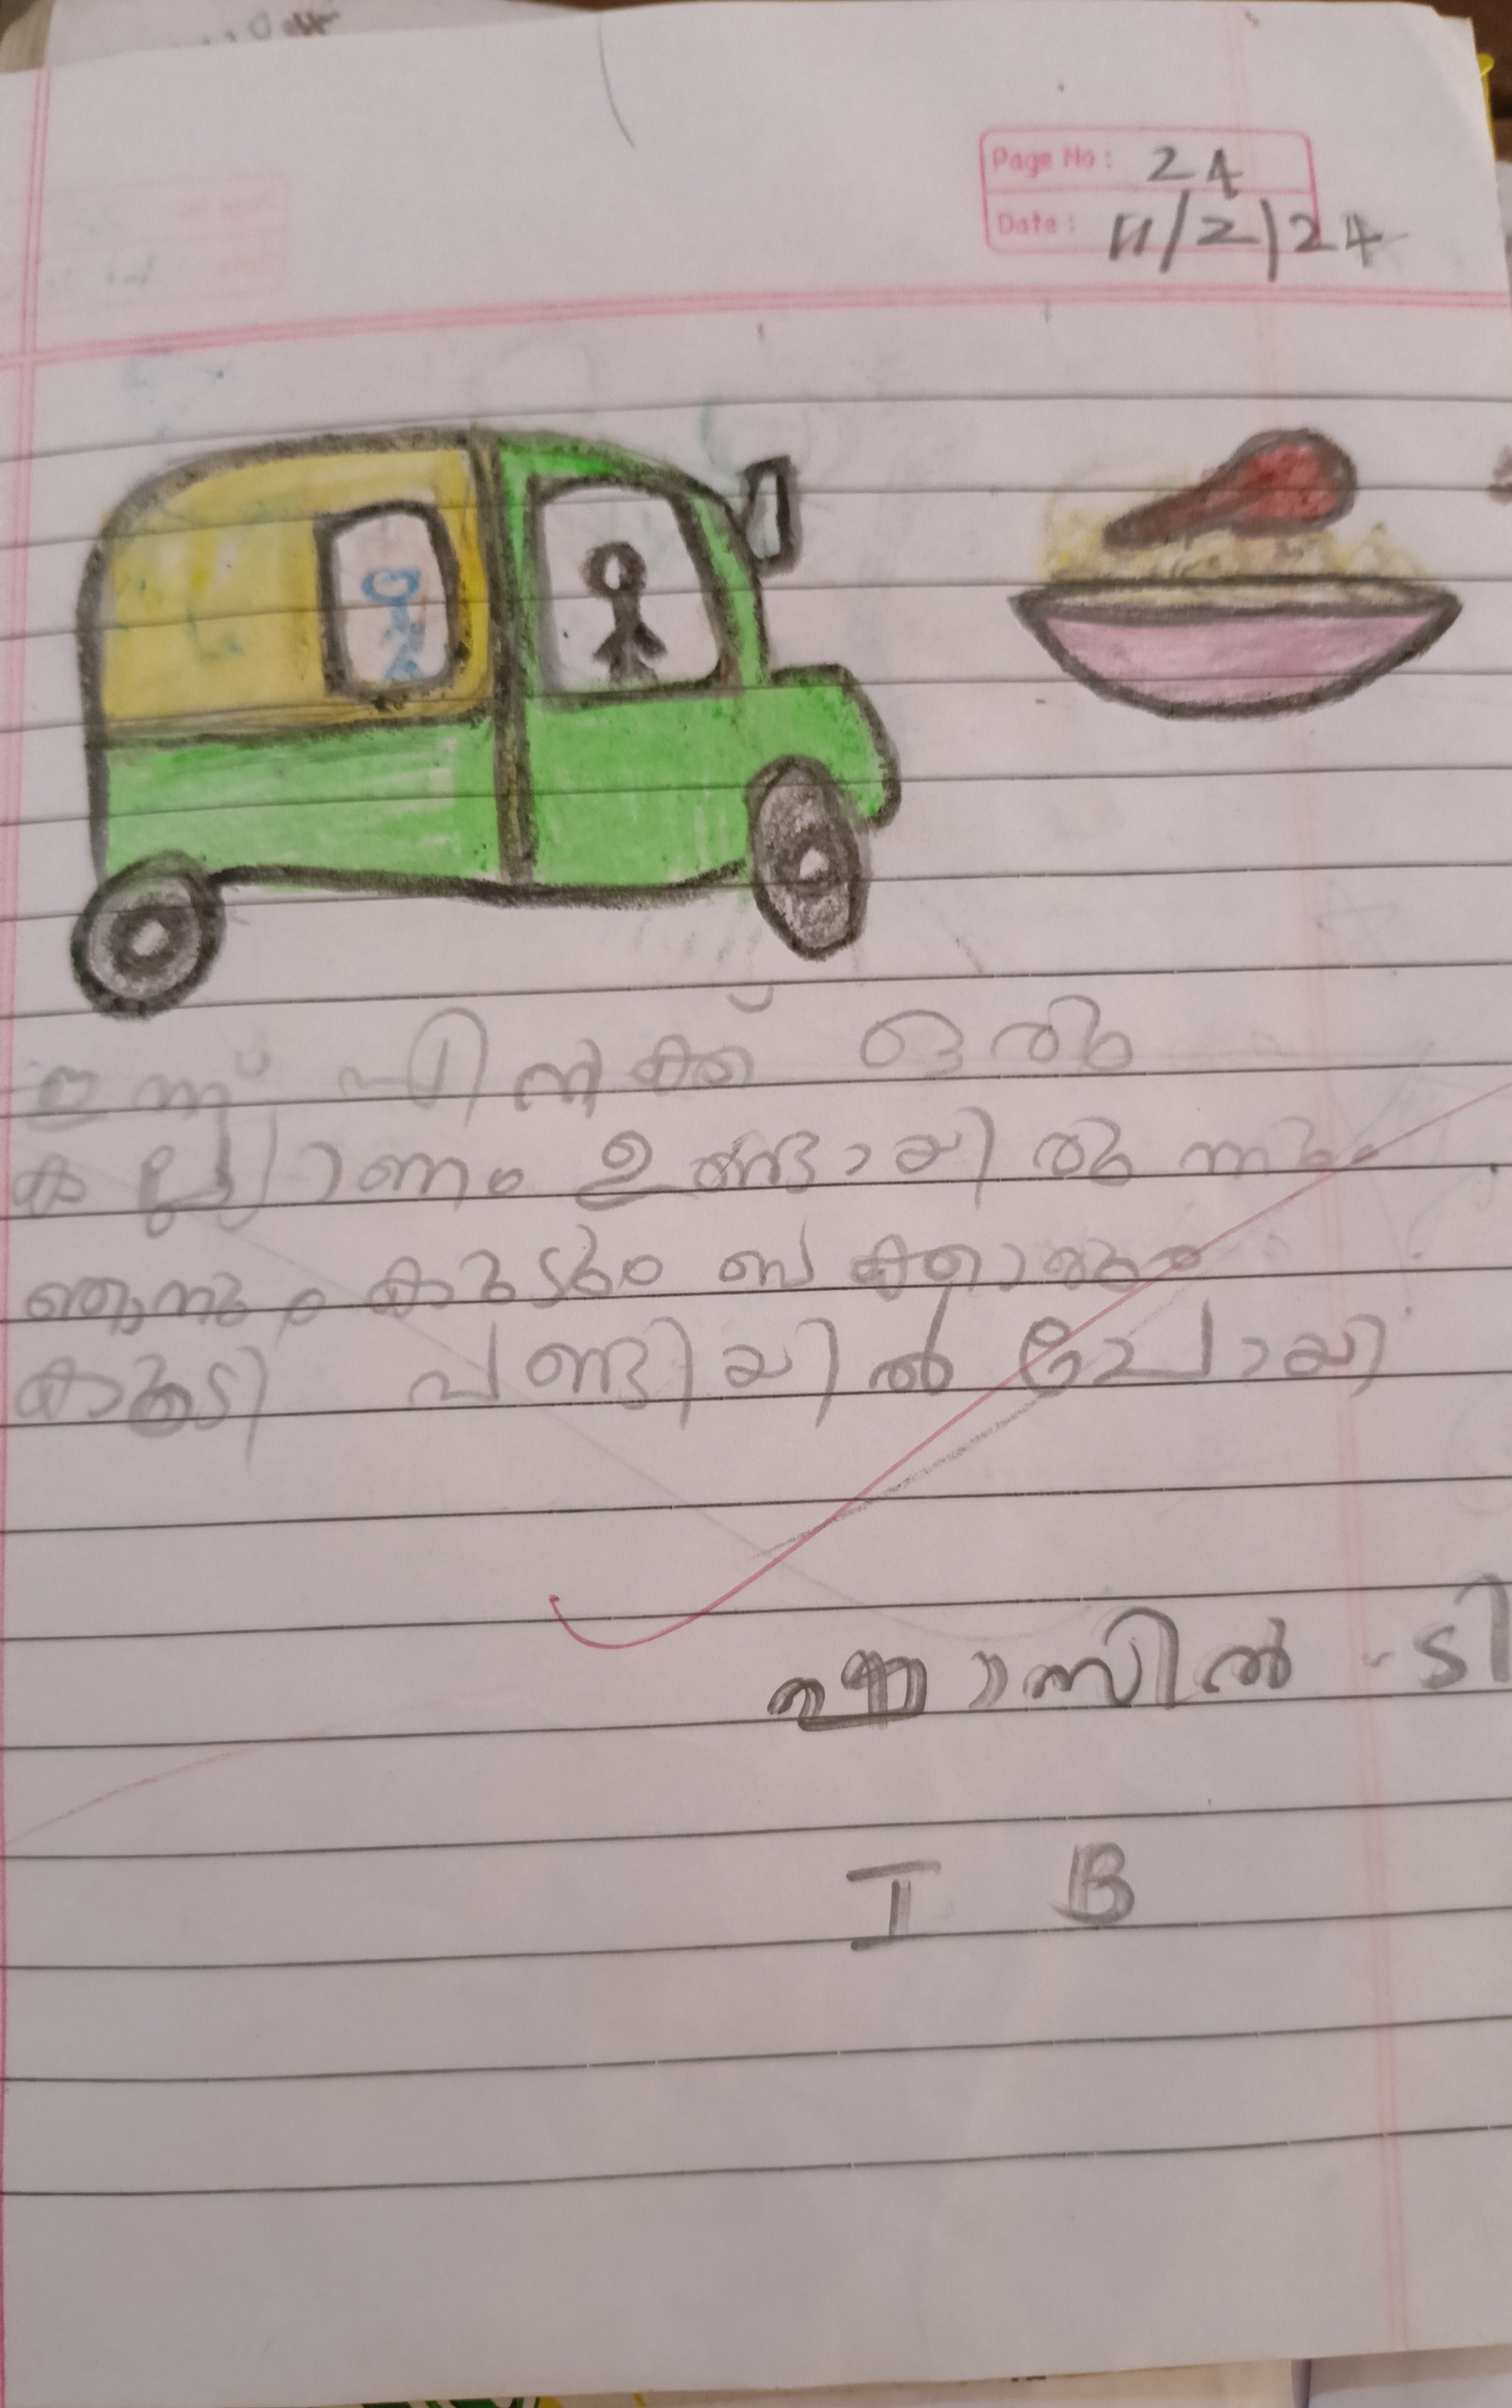 Page No : 24
Date : 11/2/24
ഇന്ന് എനിക്ക് ഒരു
കല്ല്യാണം ഉണ്ടായിരുന്നു.
ഞാനും കുടുംബക്കാരും
കൂടി വണ്ടിയിൽ പോയി
ഫാസിൽ . ടി
I B